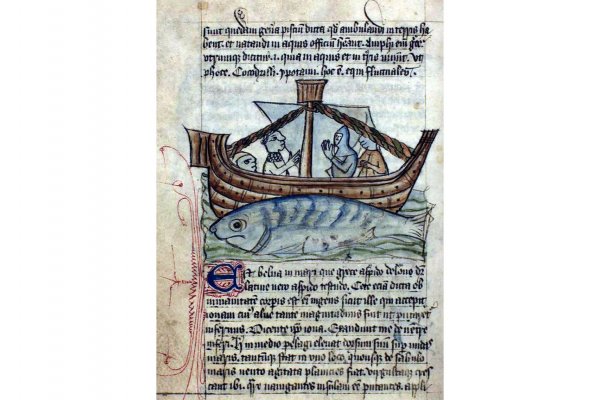 sunt quedam genera pisciũ dicta qđ ambulandi in terris ha
bent. et natandi in aquis officiũ hñt. Amphi em̃ grece
utrumque dicitur .i. qui in aquis et in tr̃is uiuũt. Vt
phoce. Cocodrilli. ypotami. hoc ẽ. equi fluctuales.
Est belua in mari que grece aspido delone dr̃
latine uero aspido testudo. Cete etiã dicta ob
inmanitatẽ corporis est eñ ingens sicut ille qui accepit
ionam cuiꝰ aluꝰ tante magnitudinis fuit ut putaret
infernus. Dicente ip̃o iona. Exaudiuit me de uentre
inferi. in medio pelagi eleuat dorsum suũ super undas
maris. tantũque stat in uno loco quousque de sabulo
maris uento agitata planicies fiat. virgultaque cres
cant ibi. nauigantes insulam eẽ putantes. appli